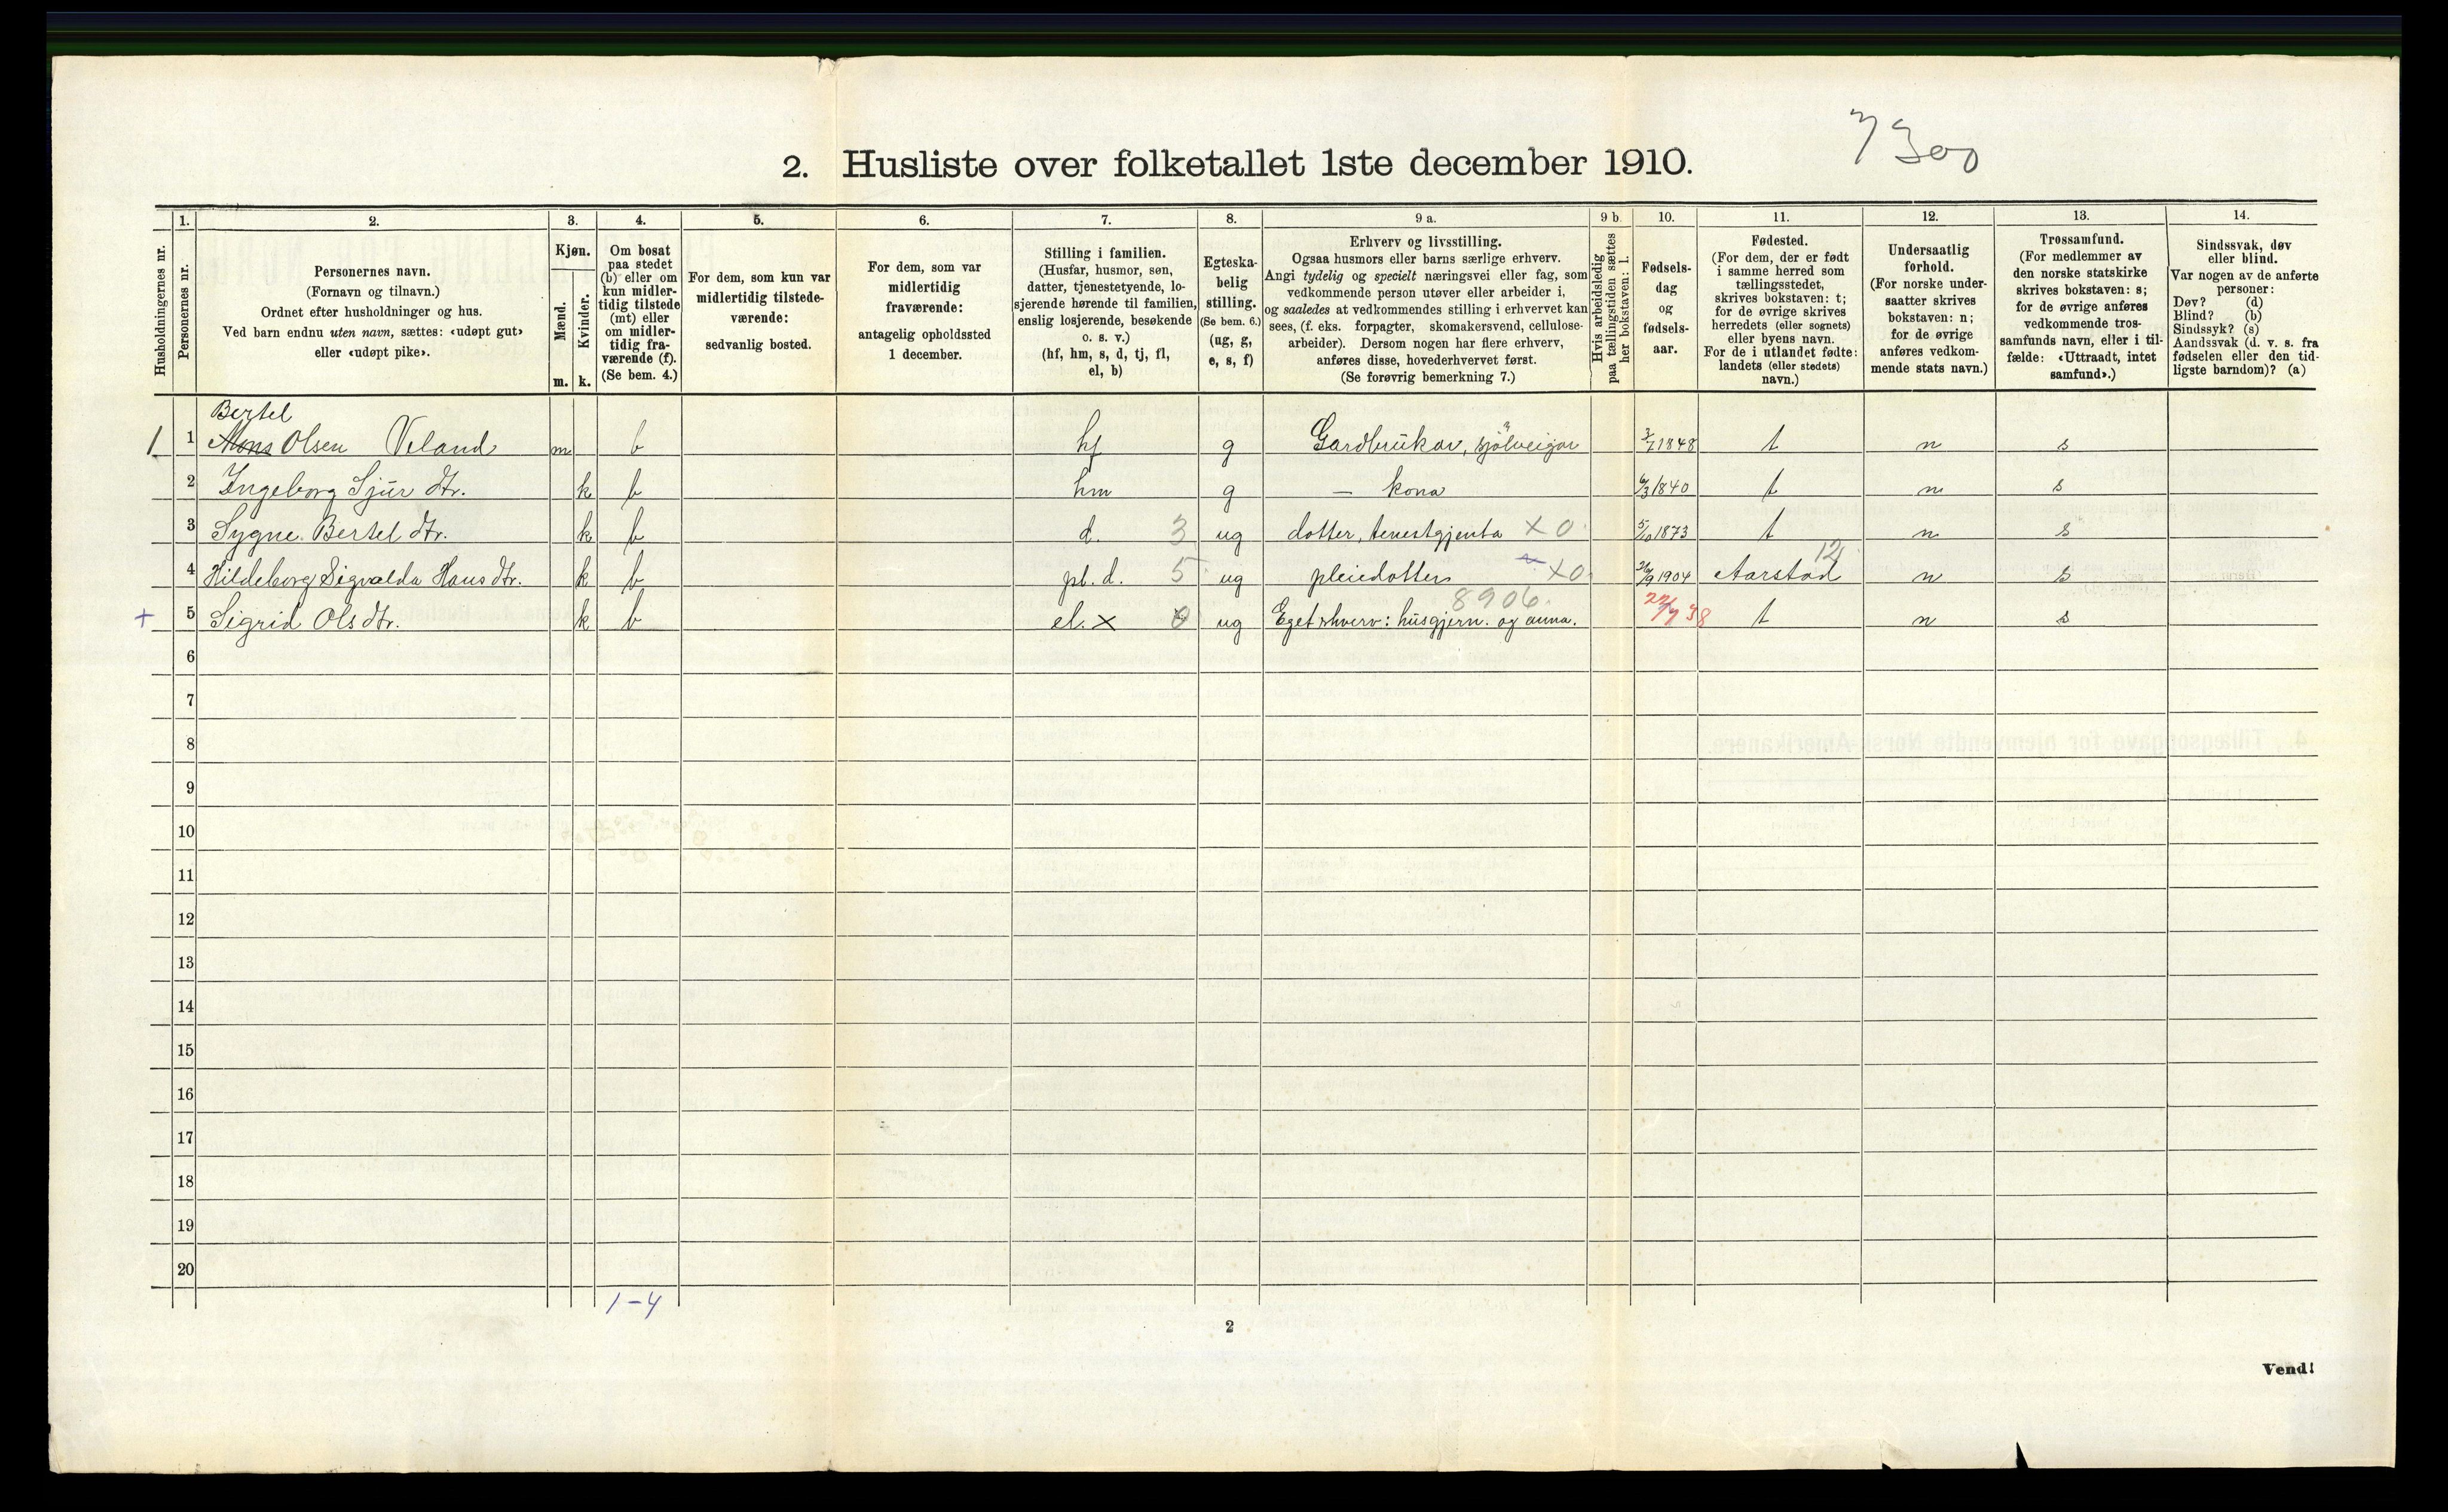 7300
2. Husliste over folketallet 1ste december 1910.
Husholdningernes nr.
1.
Personernes nr.
2.
Personernes navn.
(Fornavn og tilnavn.)
Ordnet efter husholdninger og hus.
Ved barn endnu uten navn, sættes: «udøpt gut»
eller «udøpt pike».
3.
Kjøn.
Mænd.
Kvinder.
m. k.
4.
Om bosat
paa stedet
(b) eller om
kun midler-
tidig tilstede
(mt) eller
om midler-
tidig fra-
værende (f).
(Se bem. 4.)
5.
For dem, som kun var
midlertidig tilstede-
værende:
sedvanlig bosted.
6.
For dem, som var
midlertidig
fraværende:
antagelig opholdssted
1 december.
7.
Stilling i familien.
(Husfar, husmor, søn,
datter, tjenestetyende, lo-
sjerende hørende til familien,
enslig losjerende, besøkende
o. s. v.)
(hf, hm, s, d, tj, fl,
el, b)
8.
Egteska-
belig
stilling.
(Se bem. 6.)
(ug, g,
e, s, f)
9 a.
Erhverv og livsstilling.
Ogsaa husmors eller barns særlige erhverv.
Angi tydelig og specielt næringsvei eller fag, som
vedkommende person utøver eller arbeider i,
og saaledes at vedkommendes stilling i erhvervet kan
sees, (f. eks. forpagter, skomakersvend, cellulose-
arbeider). Dersom nogen har flere erhverv,
anføres disse, hovederhvervet først.
(Se forøvrig bemerkning 7.)
9 b.
Hvis arbeidsledig
paa tællingstiden sættes
her bokstaven: l.
10.
Fødsels-
dag
og
fødsels-
aar.
11.
Fødested.
(For dem, der er født
i samme herred som
tællingsstedet,
skrives bokstaven: t;
for de øvrige skrives
herredets (eller sognets)
eller byens navn.
For de i utlandet fødte:
landets (eller stedets)
navn.)
12.
Undersaatlig
forhold.
(For norske under-
saatter skrives
bokstaven: n;
for de øvrige
anføres vedkom-
mende stats navn.)
13.
Trossamfund.
(For medlemmer av
den norske statskirke
skrives bokstaven: s;
for de øvrige anføres
vedkommende tros-
samfunds navn, eller i til-
fælde: «Uttraadt, intet
samfund».)
14.
Sindssvak, døv
eller blind.
Var nogen av de anførte
personer:
Døv? (d)
Blind? (b)
Sindssyk? (s)
Aandssvak (d. v. s. fra
fødselen eller den tid-
ligste barndom)? (a)
Bertel
1 1 Mons Olsen Veland m b hf g Gardbrukar, sjölveigar 3/7 1848 t n s
2 Ingeborg Sjur dtr. k b hm g — kona 6/3 1840 t n s
3 Sygne Bertel dtr. k b d. 3 ug dotter, tenestgjenta x 0 5/10 1873 t n s
12
4 Hildeborg Sigvalda Hans dtr. k b pl. d. 5 ug pleiedotter x 0 26/9 1904 Aarstad n s
8906.
+ 5 Sigrid Ols dtr. k b el. x 0 ug Eget erhverv: husgjern. og anna. 22/7 38 t n s
6
7
8
9
10
11
12
13
14
15
16
17
18
19
20
1-4
2
Vend!